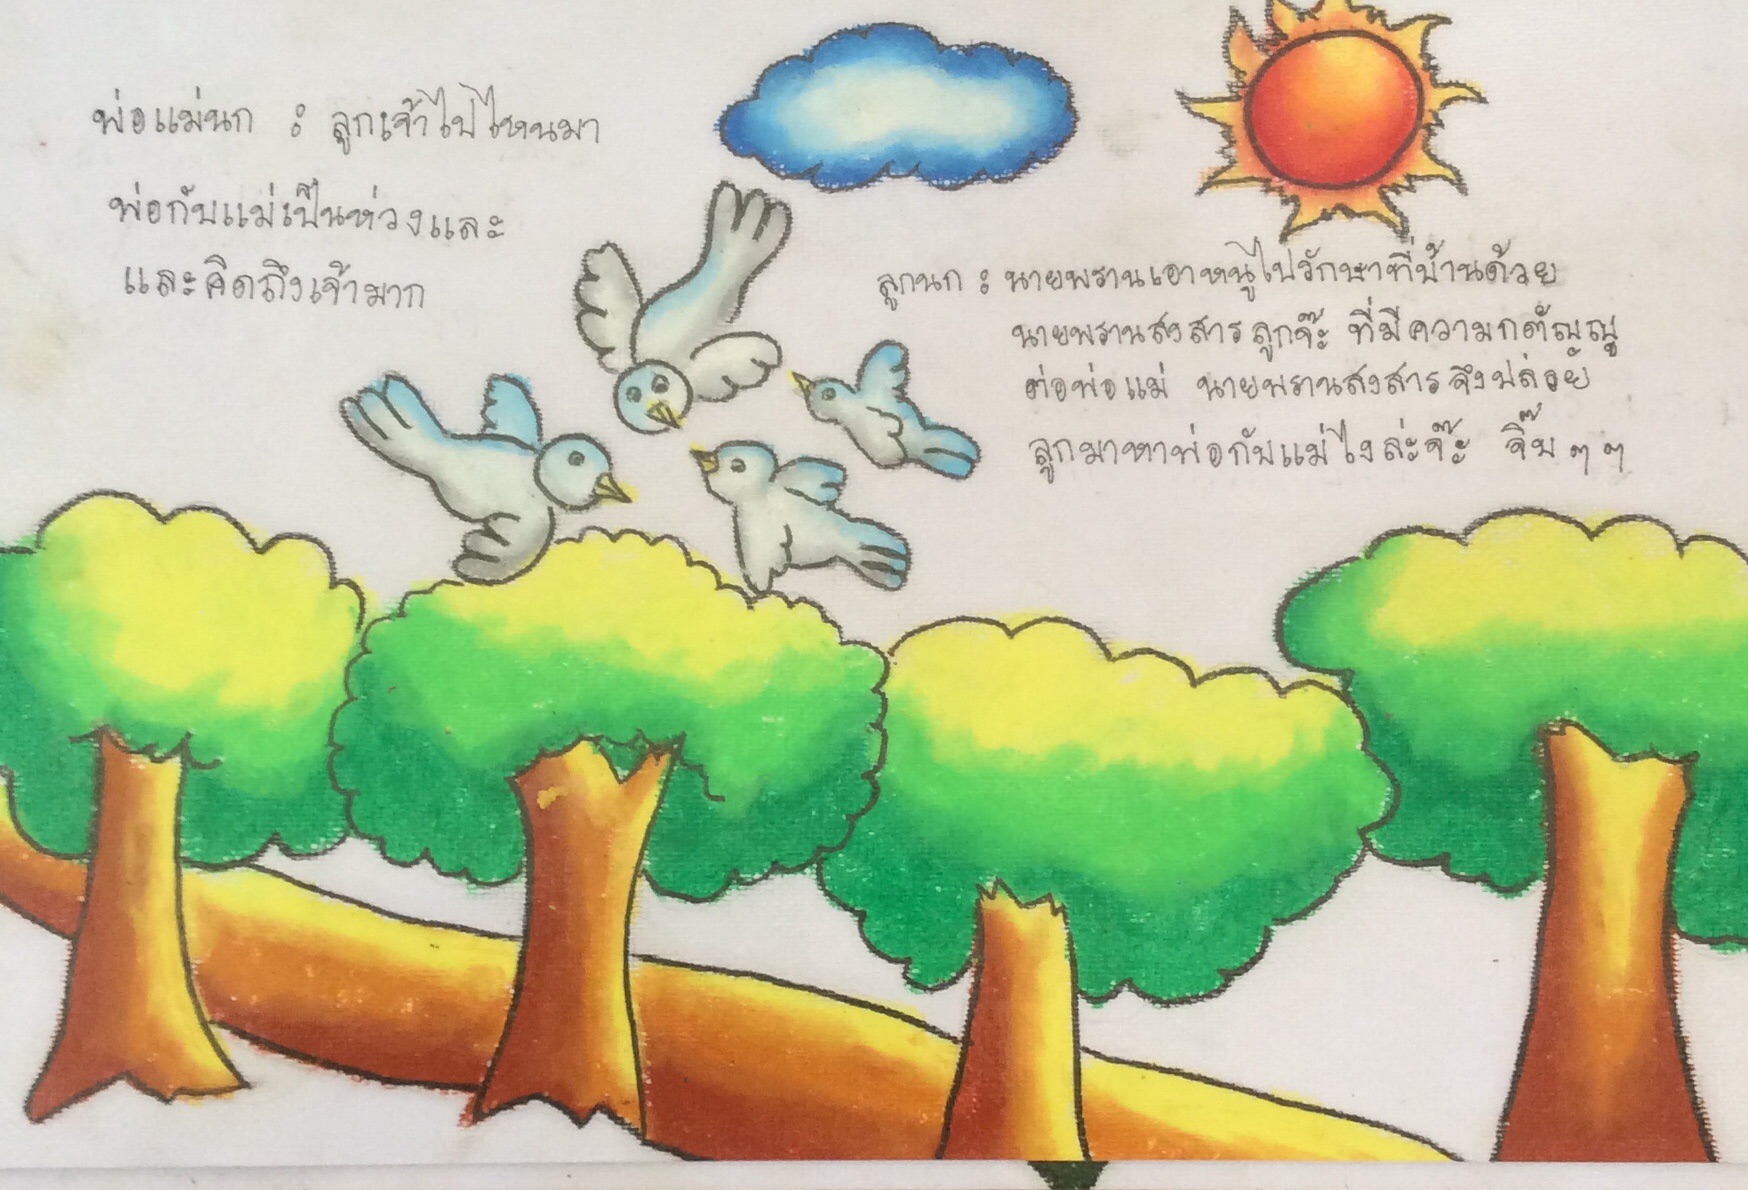 พ่อแม่นก : ลูกเจ้าไปไหนมา
พ่อกับแม่เป็นห่วงและ
และคิดถึงเจ้ามาก
ลูกนก : นายพรานเอาหนูไปรักษาที่บ้านด้วย
นายพรานสงสารลูกจ๊ะ ที่มีความกตัญญู
ต่อพ่อแม่ นายพรานสงสารจึงปล่อย
ลูกมาหาพ่อกับแม่ไงล่ะจ๊ะ จิ๊บๆๆ